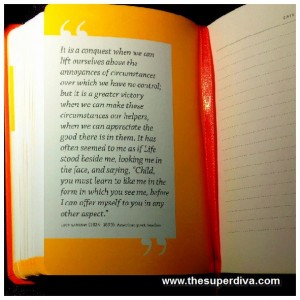 “
It is a conquest when we can
lift ourselves above the
annoyances of circumstances
over which we have no control;
but it is a greater victory
when we can make those
circumstances our helpers,
when we can appreciate the
good there is in them. It has
often seemed to me as if Life
stood beside me, looking me in
the face, and saying, "Child,
you must learn to like me in the
form in which you see me, before
I can offer myself to you in any
other aspect."
”
www.thesuperdiva.com